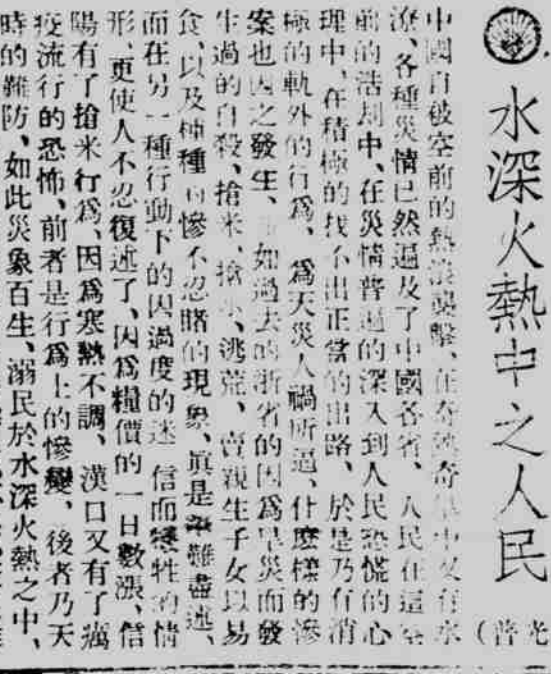 水深火熱中之人民
(普光
中國自被空前的熱浪襲擊、在奇熱奇旱中又有水
潦、各種災情已然遍及了中國各省、人民在這空
前的浩刧中、在災情普遍的深入到人民恐慌的心
理中、在積極的找不出正當的出路、於是乃有消
極的軌外的行爲、爲天災人禍所逼、什麽樣的慘
案也因之發生、如過去的浙省的因爲旱災而發
生過的自殺、搶米、搶、逃荒、賣親生子女以易
食、以及種種慘不忍睹的現象、眞是難盡述、
而在另一種行動下的因過度的迷信而犧牲的情
形、更使人不忍復述了、因爲糧價的一日數漲、信
陽有了搶米行爲、因爲寒熱不調、漢口又有了癘
疫流行的恐怖、前者是行爲上的慘變、後者乃天
時的難防、如此災象百生、溺民於水深火熱之中、